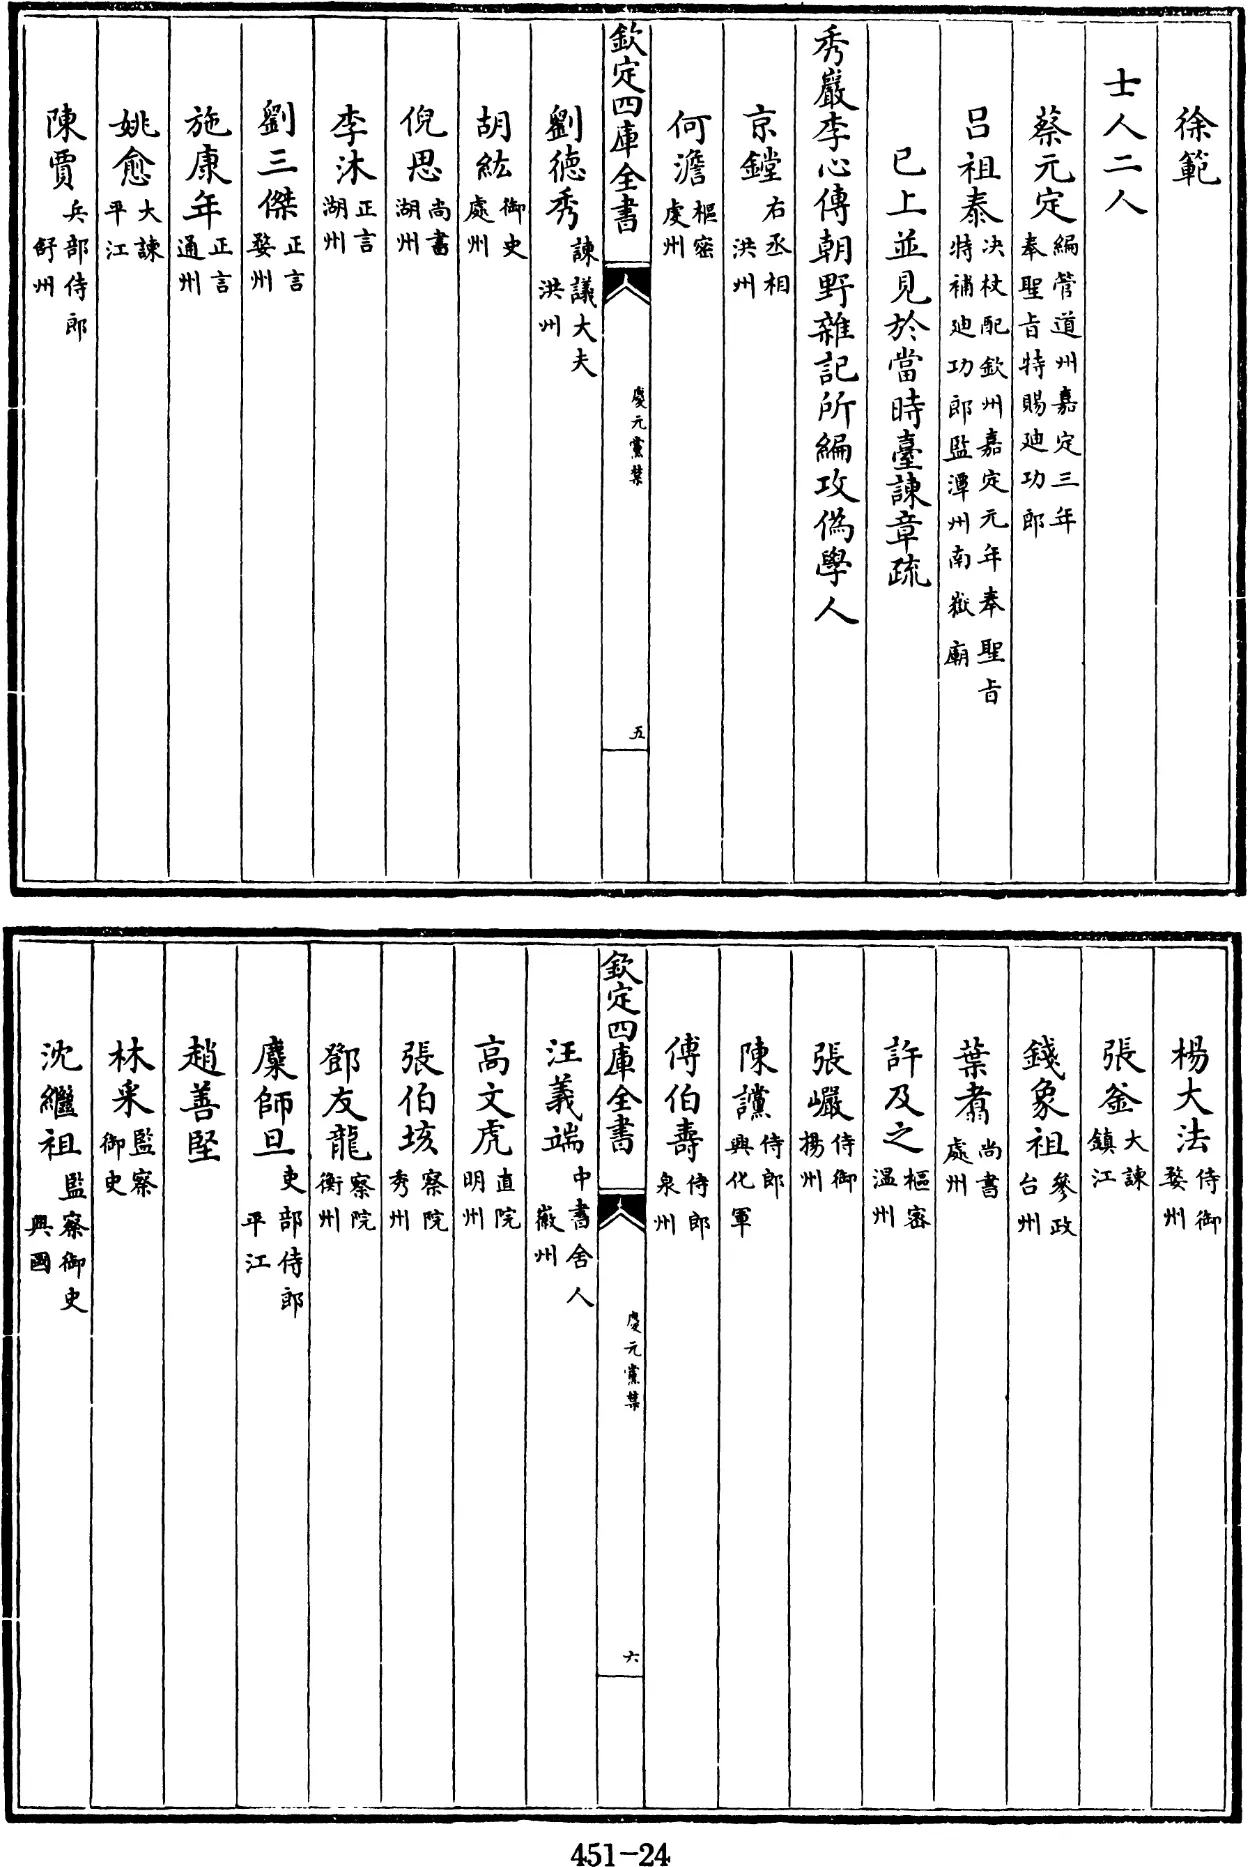 徐範
士人二人
蔡元定編管道州嘉定三年奉聖旨特賜廸功郎
呂祖泰決杖配欽州嘉定元年奉聖旨特補廸功郎監潭州南嶽廟
已上並見於當時臺諫章疏
秀巖李心傳朝野雜記所編攻偽學人
京鏜右丞相洪州
何澹樞密虔州
欽定四庫全書
慶元黨禁
五
劉德秀諫議大夫洪州
胡紘御史處州
倪思尚書湖州
李沐正言湖州
劉三傑正言婺州
施康年正言通州
姚愈大諫平江
陳賈兵部侍郎舒州
楊大法侍御婺州
張釜大諫鎮江
錢象祖參政台州
葉翥尚書處州
許及之樞密温州
張巖侍御揚州
陳讜侍郎興化軍
傅伯壽侍郎泉州
欽定四庫全書
慶元黨禁
六
汪義端中書舍人徽州
高文虎直院明州
張伯垓察院秀州
鄧友龍察院衡州
麋師旦吏部侍郎平江
趙善堅
林采監察御史
沈繼祖監察御史興國
451-24